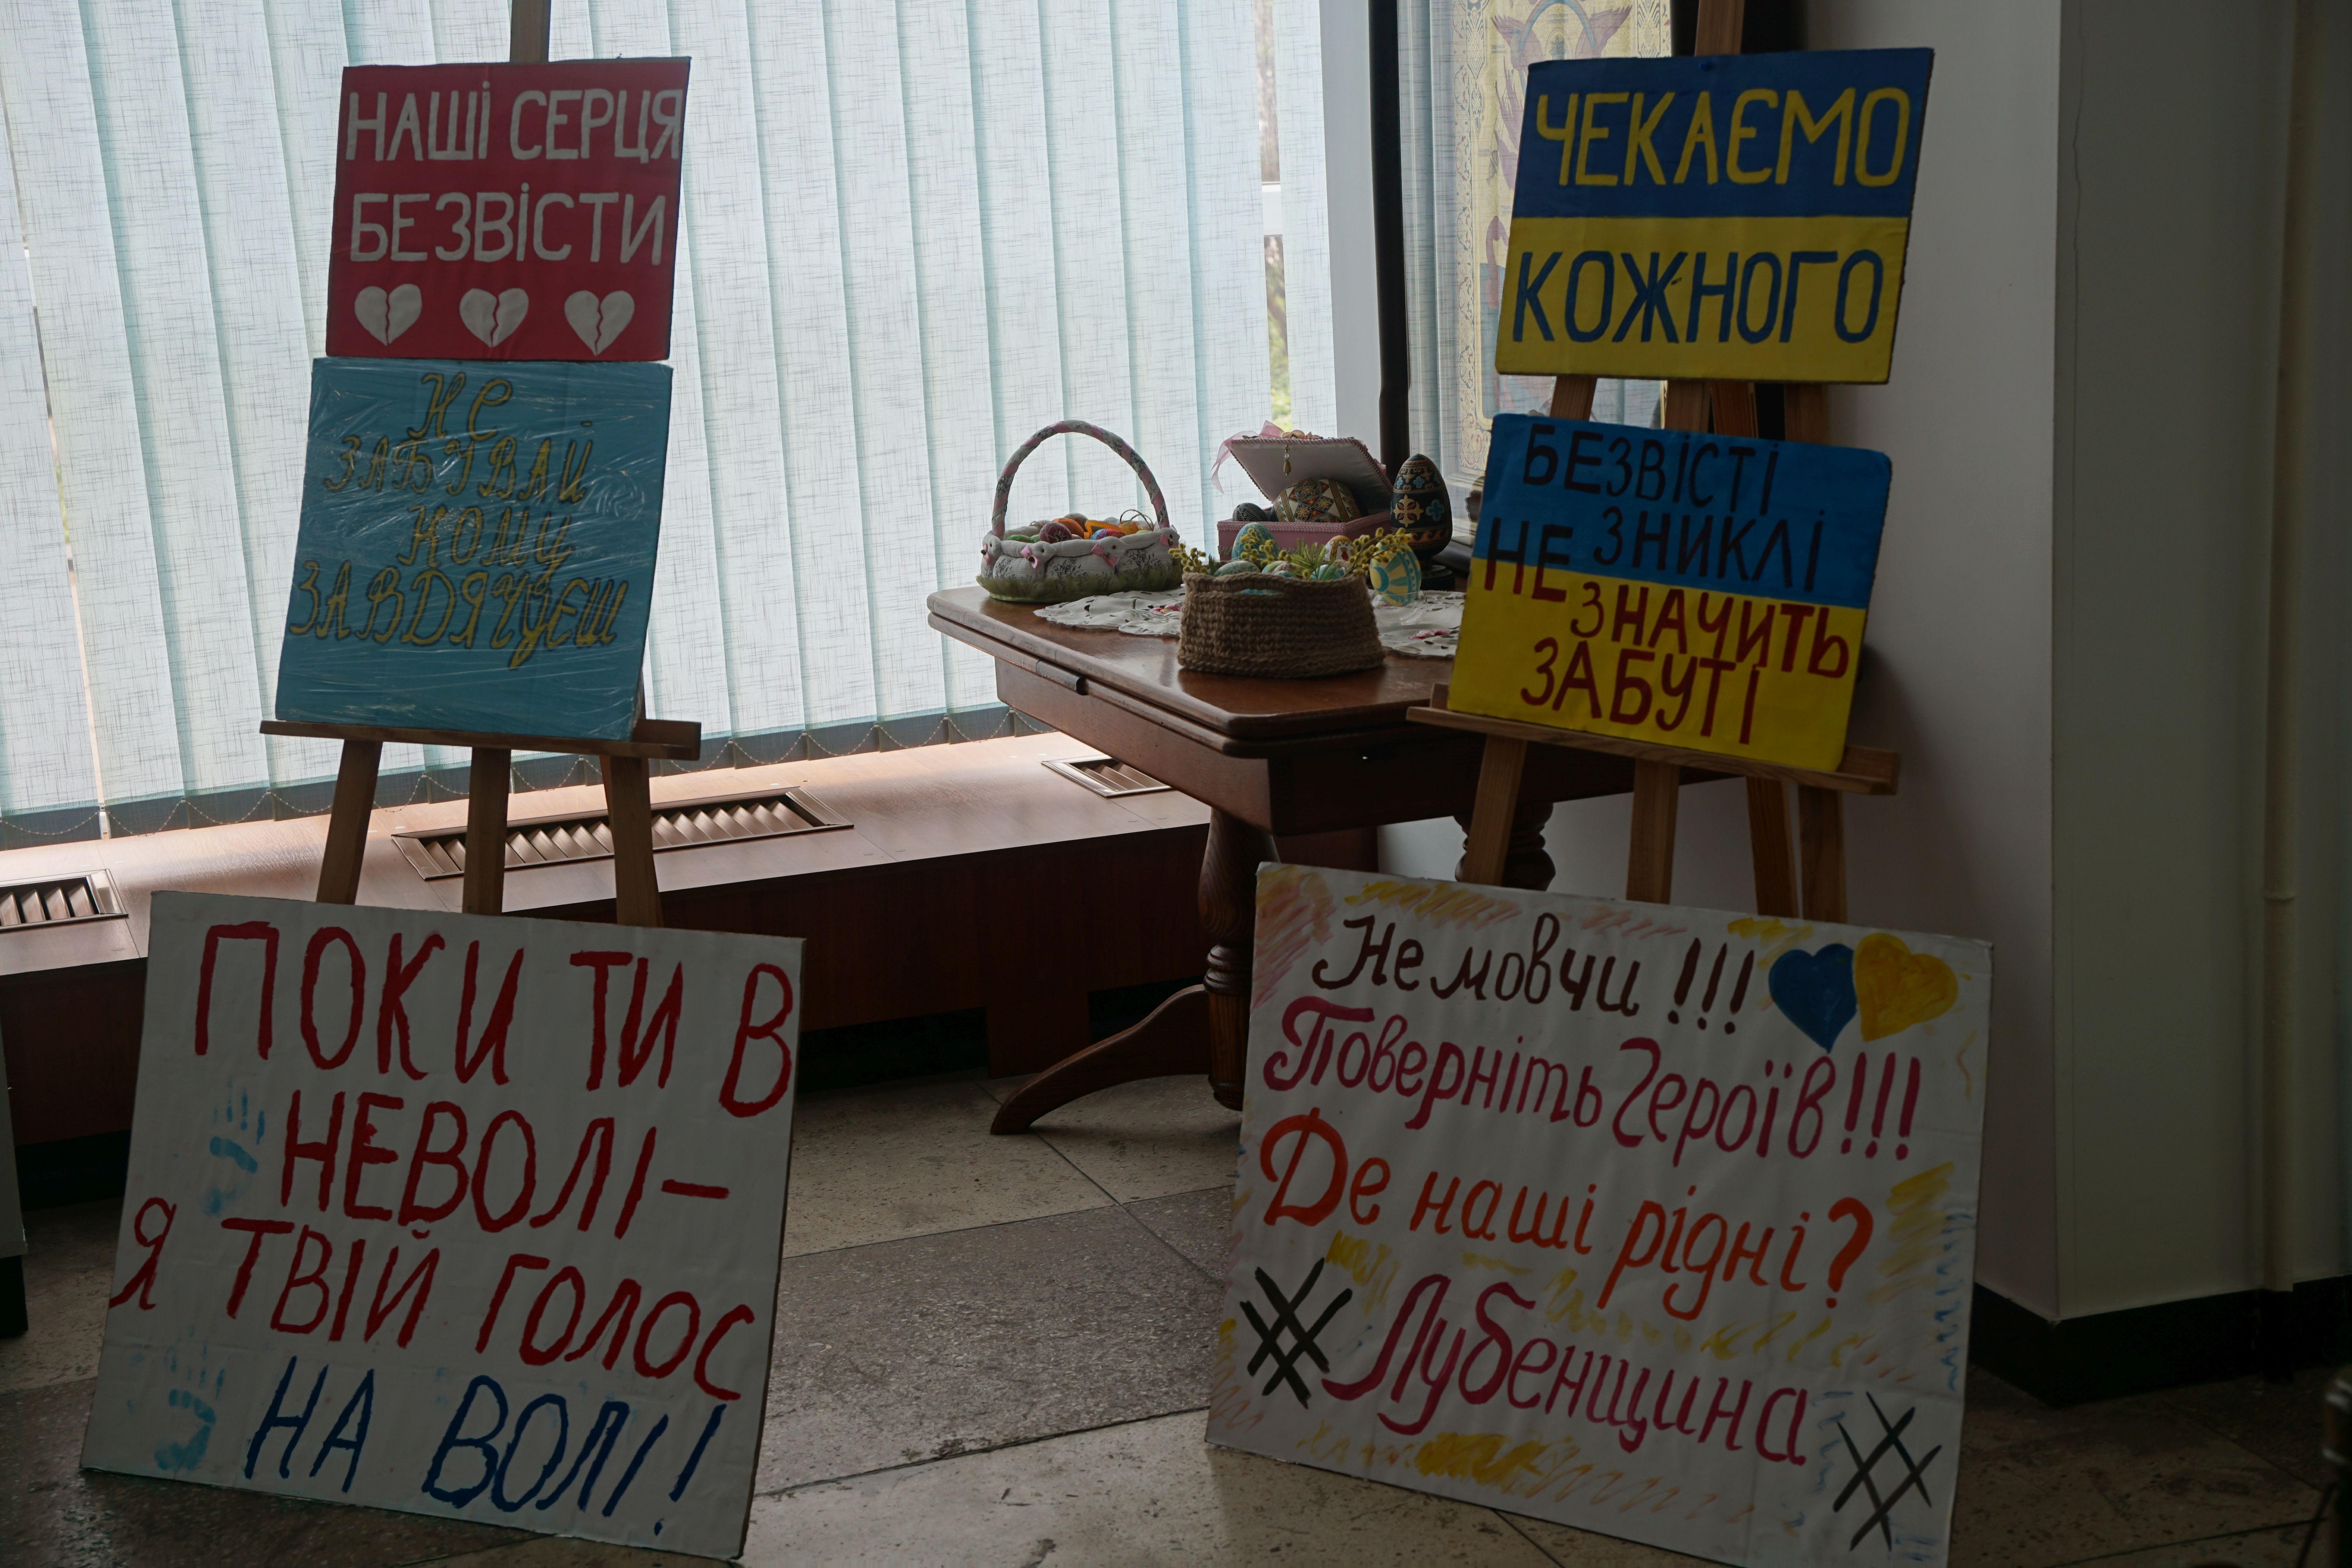 НАШІ СЕРЦЯ
БЕЗВІСТИ
НЕ
ЗАБУВАЙ
КОМУ
ЗАВДЯЧУЄШ
ПОКИ ТИ В
НЕВОЛІ –
Я ТВІЙ ГОЛОС
НА ВОЛІ!
ЧЕКАЄМО
КОЖНОГО
БЕЗВІСТІ
ЗНИКЛІ
НЕ ЗНАЧИТЬ
ЗАБУТІ
Не мовчи !!!
Поверніть Героїв!!!
Де наші рідні?
Лубенщина